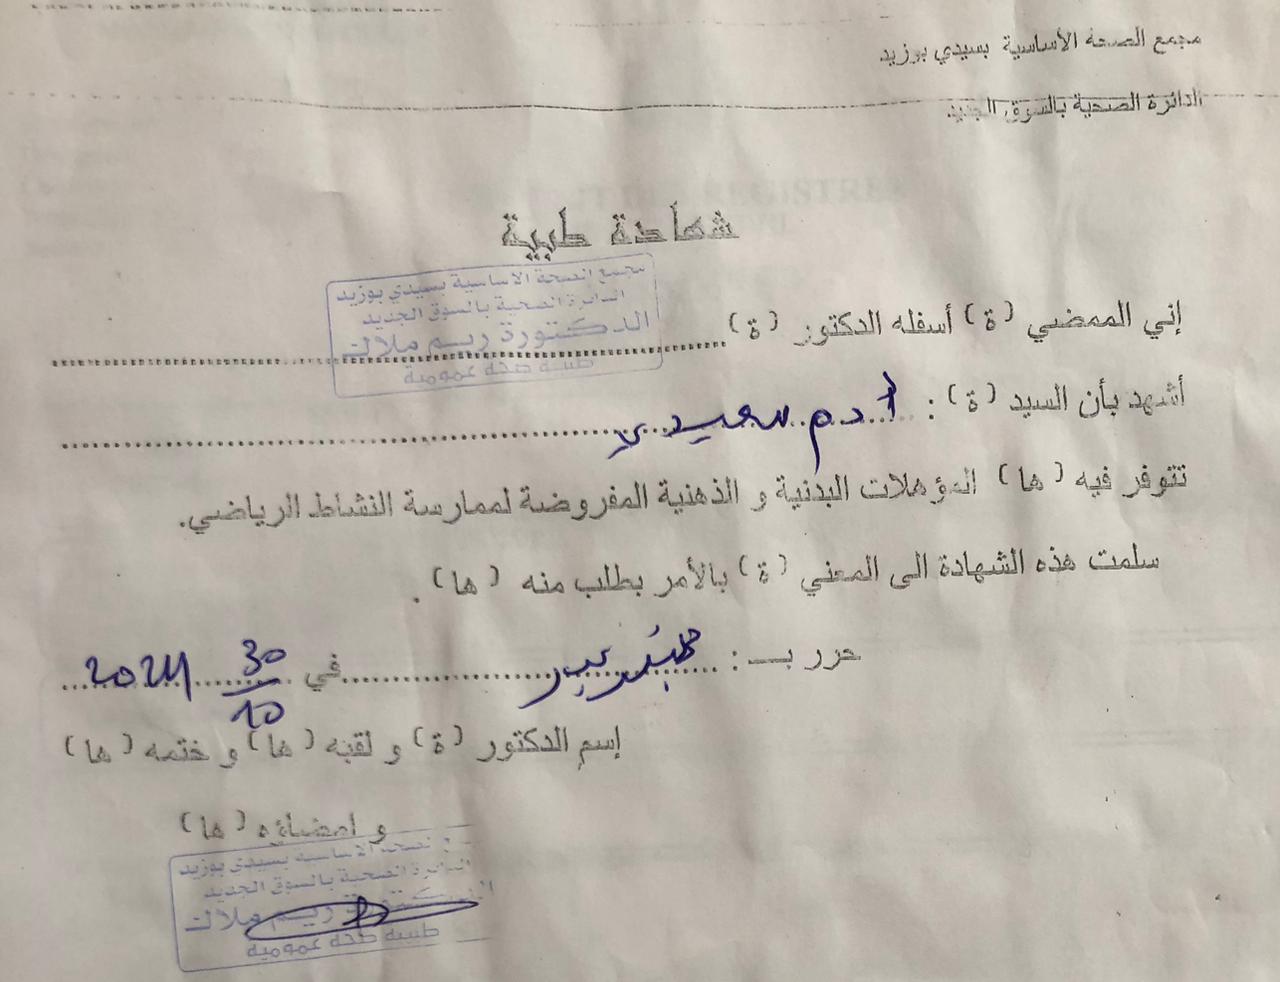 مجمع الصحة الأساسية بسيدي بوزيد
الدائرة الصحية بالسوق الجديد
شهادة طبية
مجمع الصحة الاساسية بسيدي بوزيد
الدائرة الصحية بالسوق الجديد
الدكتورة ريم ملاك
طبيبة صحة عمومية
إني الممضي (ة) أسفله الدكتور (ة)
أشهد بأن السيد (ة) : آدم سعيدي
تتوفر فيه (ها) المؤهلات البدنية و الذهنية المفروضة لممارسة النشاط الرياضي.
سلمت هذه الشهادة الى المعني (ة) بالأمر بطلب منه (ها) .
حرر بـــ : في 30/10 2024
إسم الدكتور (ة) و لقبه (ها) و ختمه (ها)
و امضاؤه (ها)
مجمع الصحة الاساسية بسيدي بوزيد
الدائرة الصحية بالسوق الجديد
الدكتورة ريم ملاك
طبيبة صحة عمومية